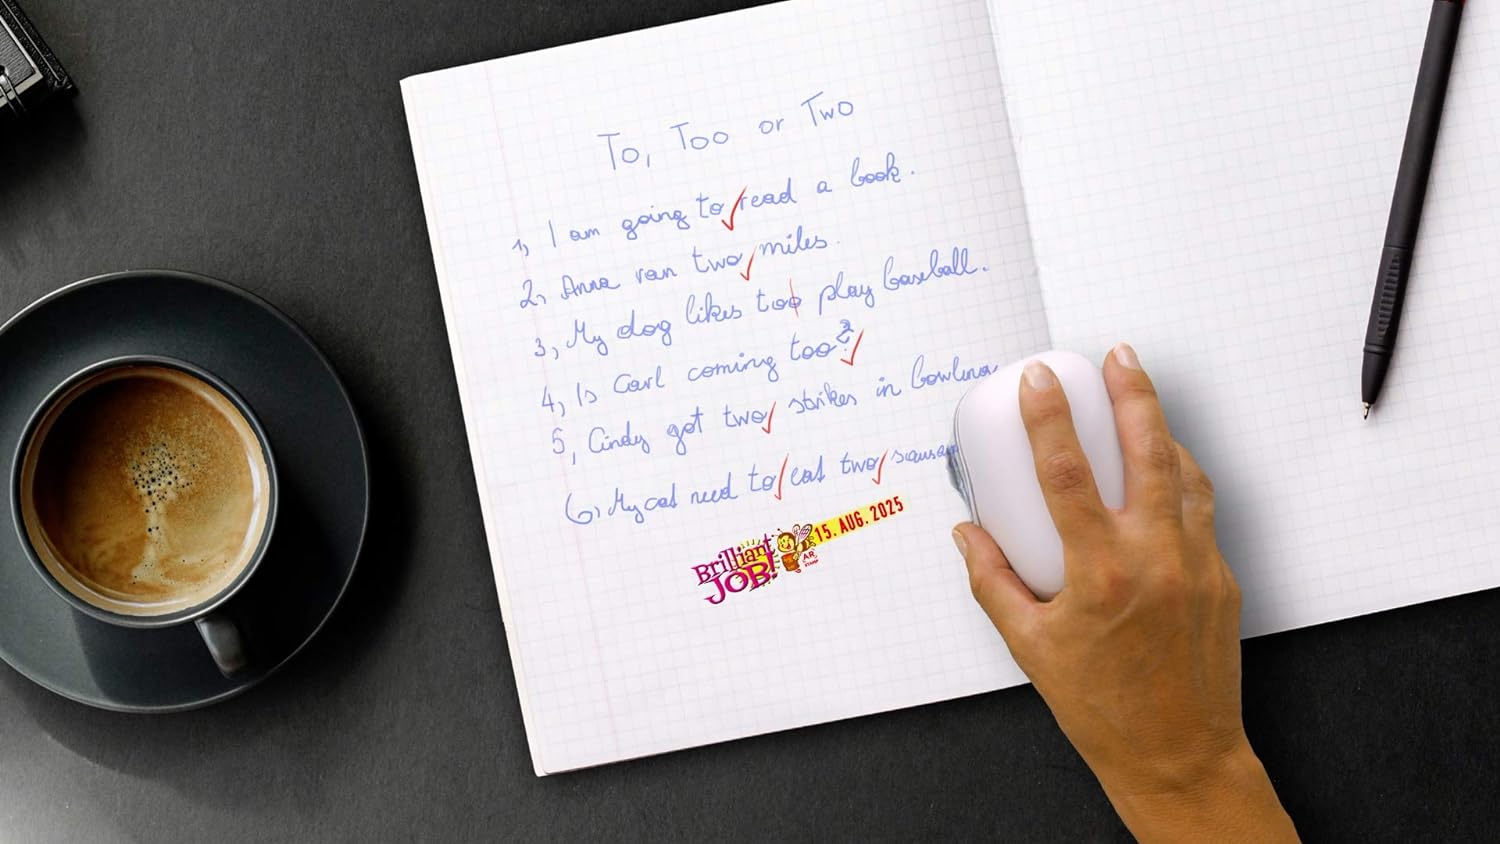 To, Too or Two
1, I am going to read a book.
2, Anna ran two miles.
3, My dog likes too play baseball.
4, Is Carl coming too?
5, Cindy got two strikes in bowling
6, My cat need to eat two
Brilliant JOB! 15. AUG. 2025
AR
STAMP